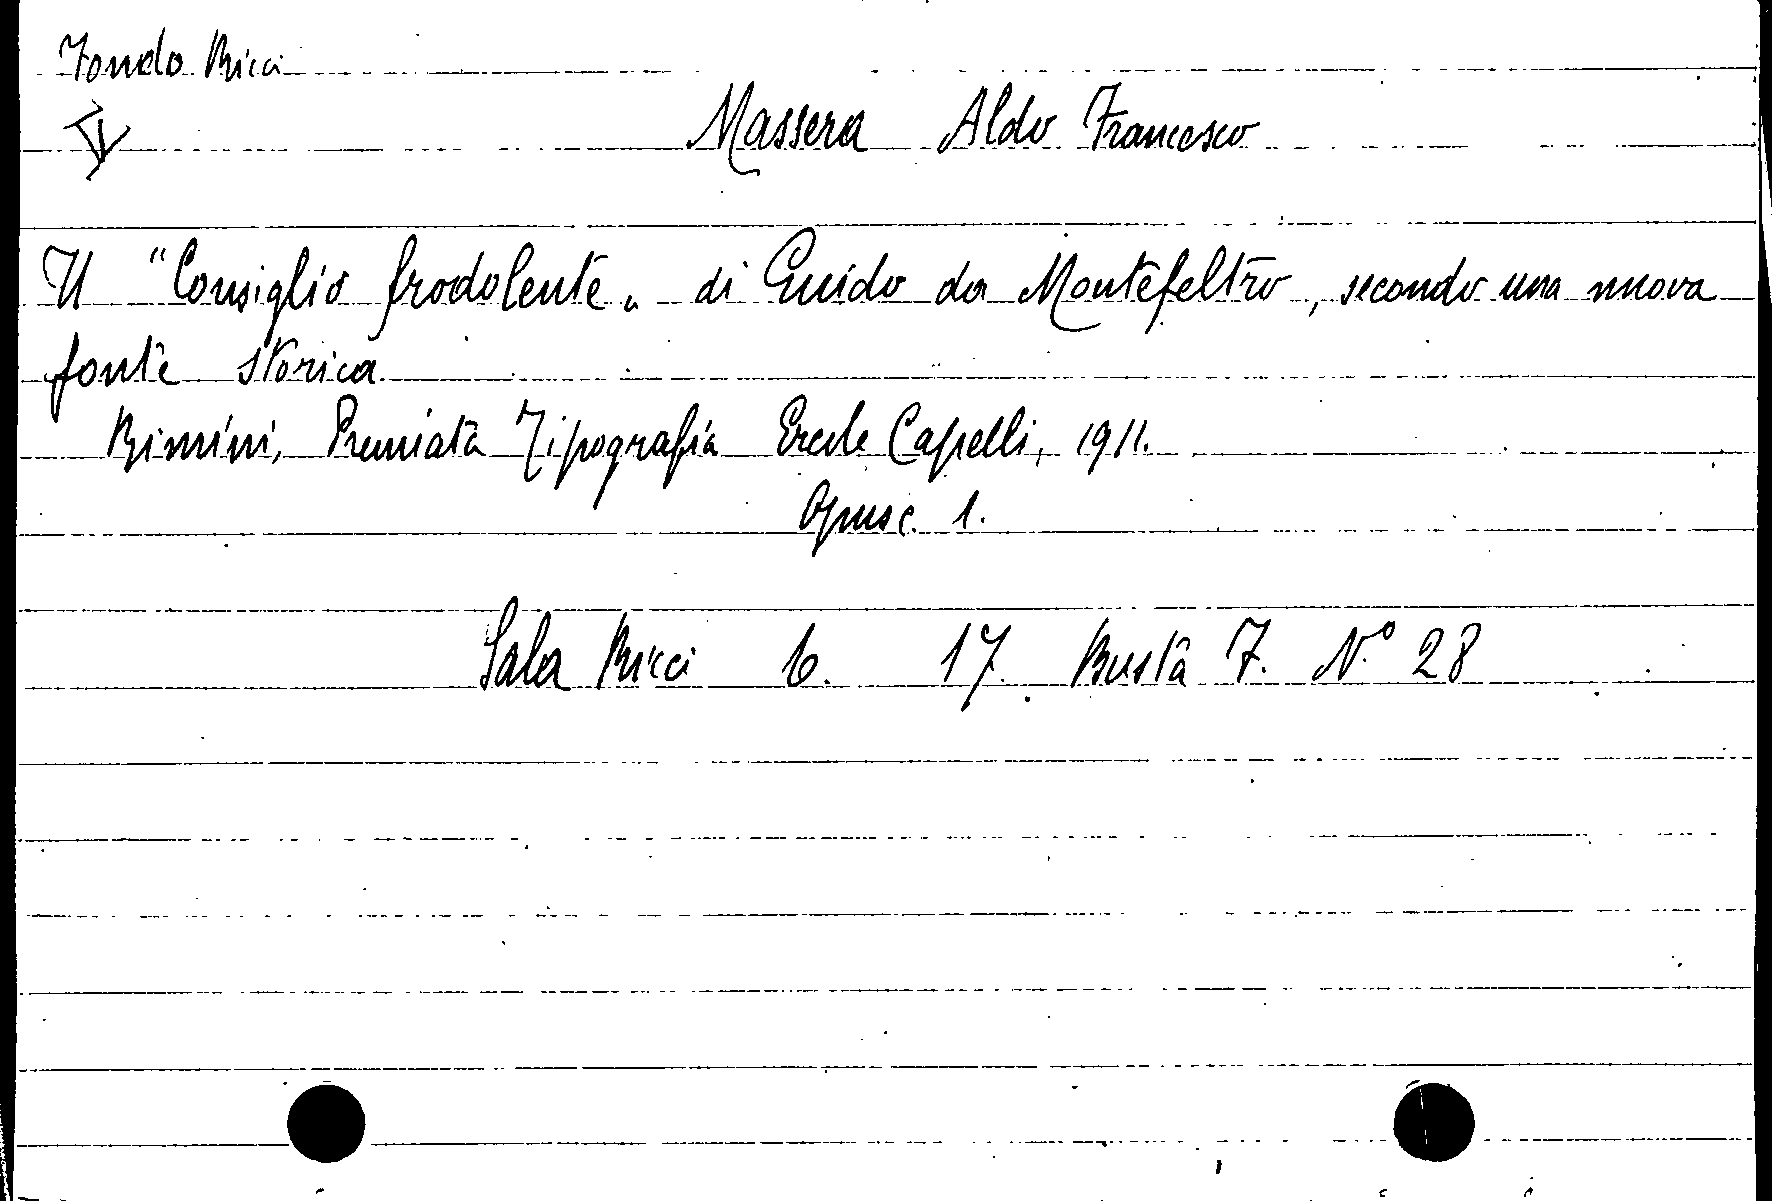 Fondo Ricci
IV
Massera Aldo Francesco
Il "Consiglio frodolente" di Guido da Montefeltro, secondo una nuova
fonte storica
Rimini, Premiata Tipografia Ercole Capelli, 1911.
Opusc. 1.
Sala Ricci 6. 17. Busta 7. N.° 28